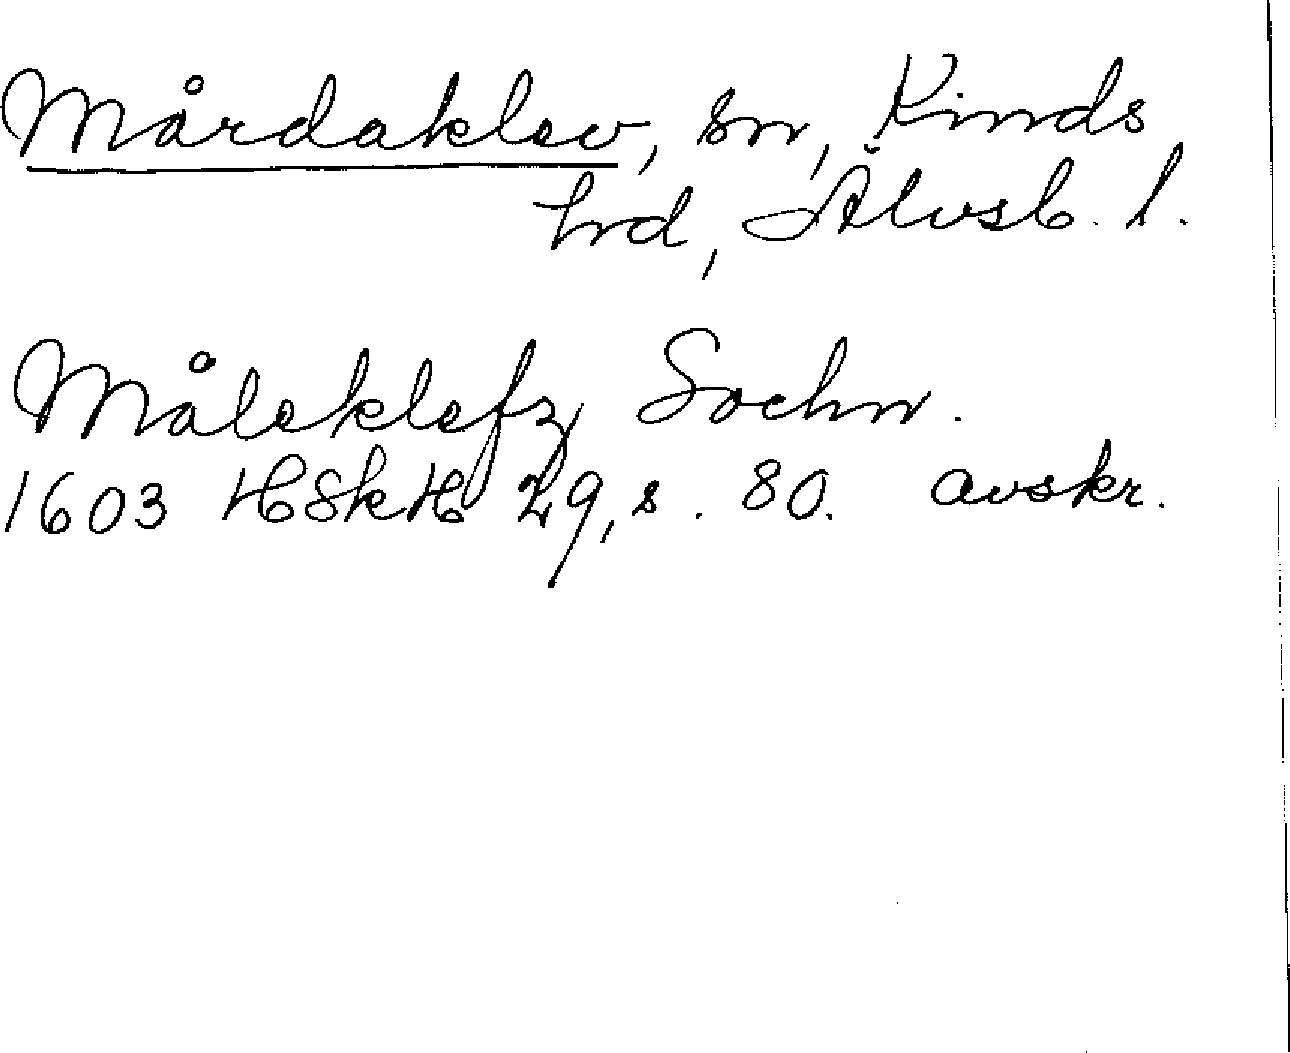 Mårdaklev, sn, Kinds
hrd, Älvsb. l.
Måleklefz Sochn.
1603 HSkH 29, s. 80. avskr.